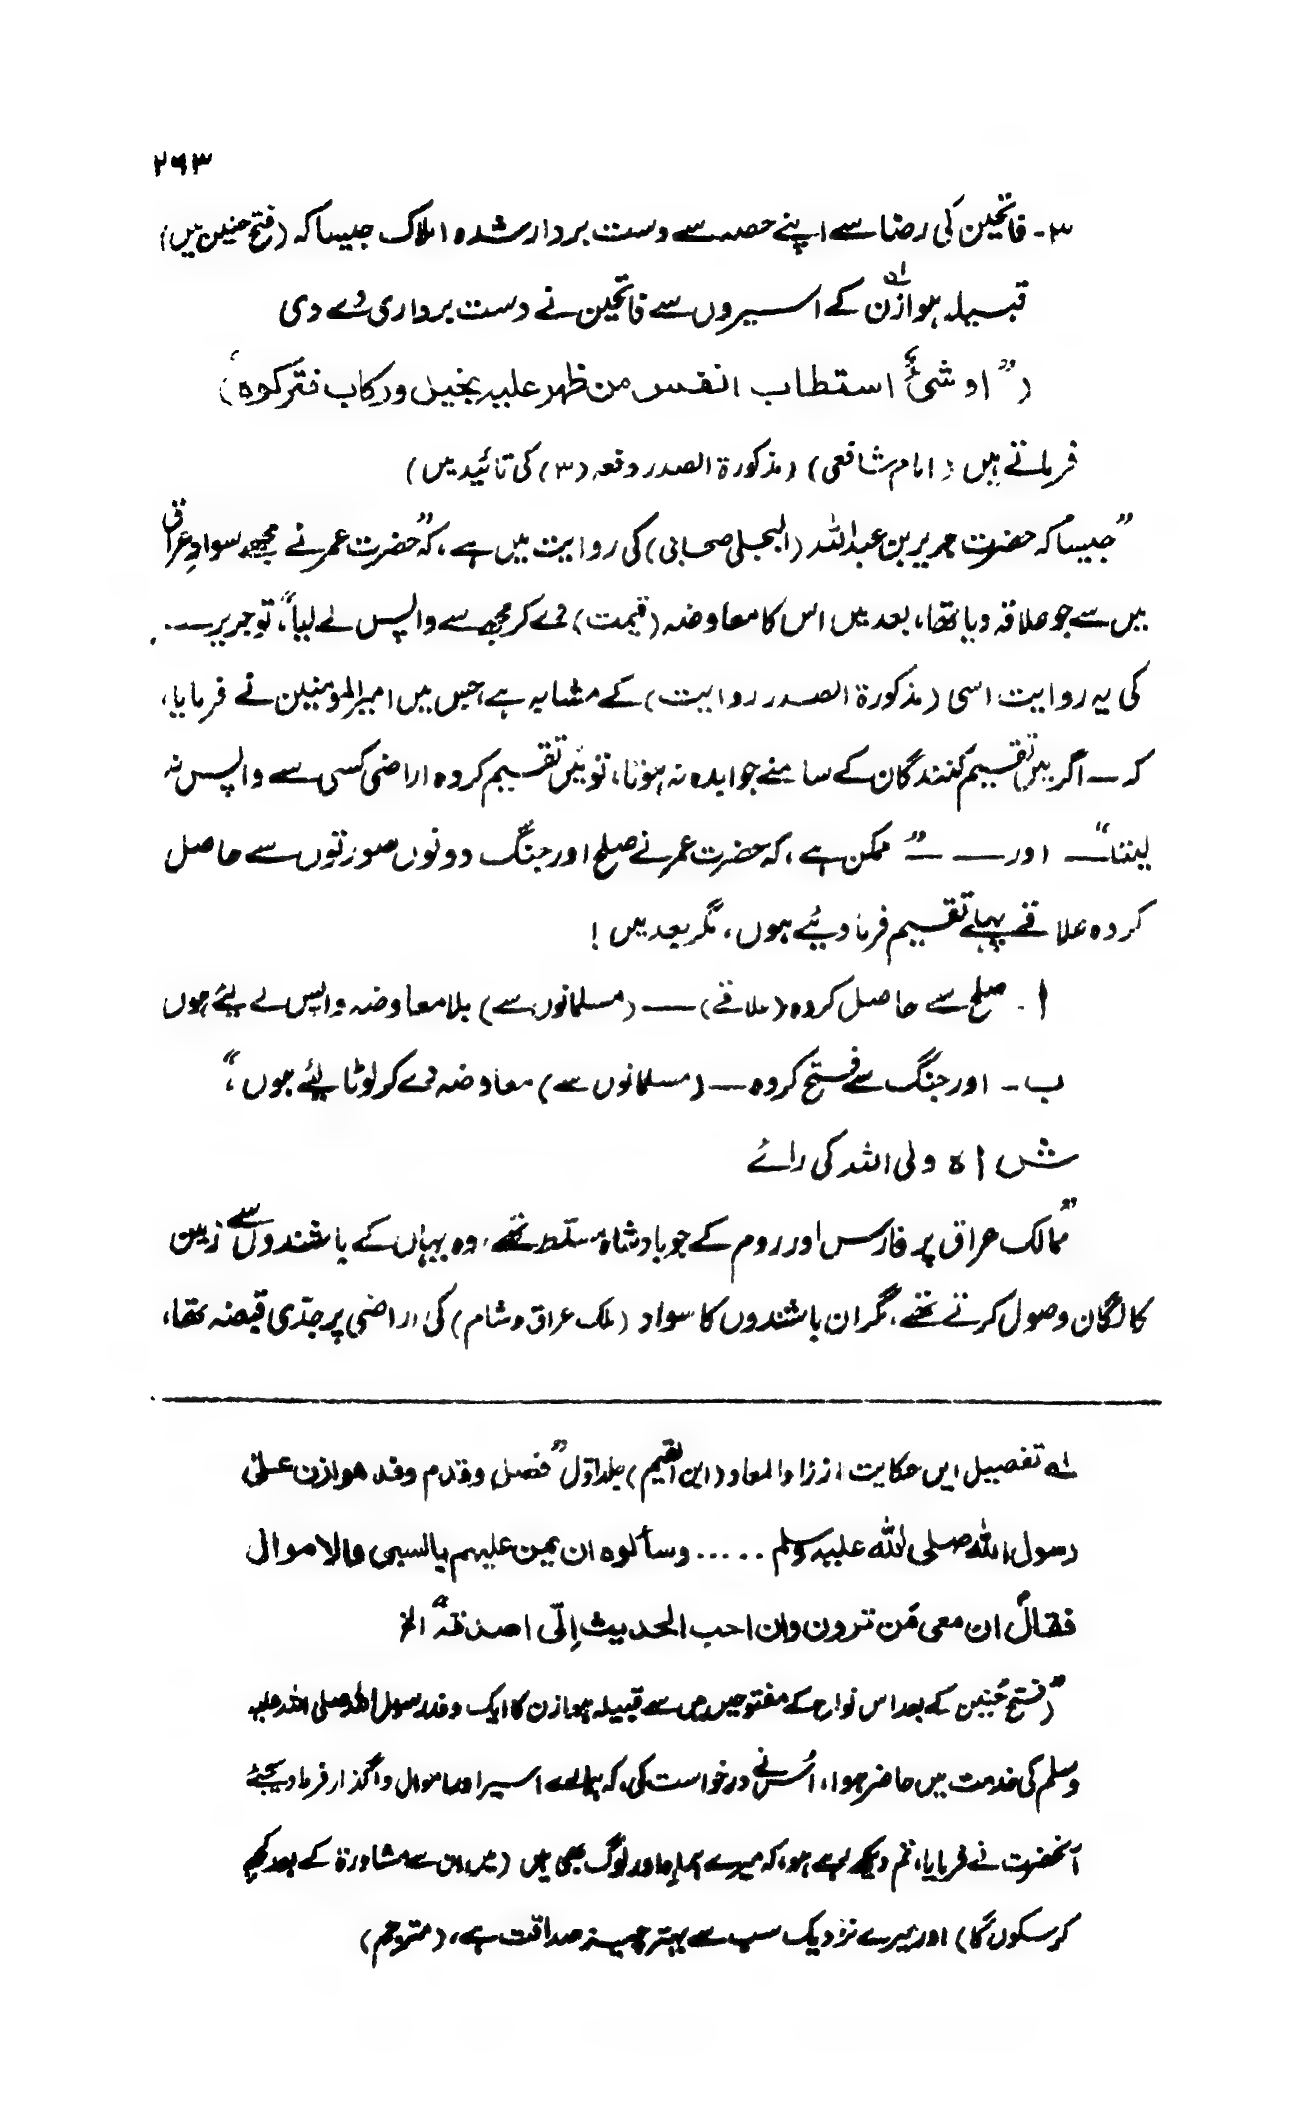 ۲۶۳
۳۔ فاتحین کی رضا سے اپنے حصہ سے دست بردار شدہ املاک جیسا کہ (فتح حنین میں)
قبیلہ ہوازن لہ کے اسیروں سے فاتحین نے دست برداری دے دی
(”او شیٔ استطاب انفس من ظهر علیہ بخیل و رکاب فترکوہ“)
فرماتے ہیں (امام شافعی) (مذکورۃ الصدر دفعہ (۳) کی تائید میں)
”جیسا کہ حضرت جریر بن عبداللہ (البجلی صحابی) کی روایت میں ہے، کہ ”حضرت عمر نے مجھے سوادِ عراق
میں سے جو علاقہ دیا تھا، بعد میں اس کا معاوضہ (قیمت) دے کر مجھ سے واپس لے لیا“، تو جریر ــ
کی یہ روایت اسی (مذکورۃ الصدر روایت) کے مشابہ ہے جس میں امیر المومنین نے فرمایا،
کہ ــ اگر میں تقسیم کنندگان کے سامنے جوابدہ نہ ہوتا، تو میں تقسیم کردہ اراضی کسی سے واپس نہ
لیتا“ ــ اور ــ ”ممکن ہے، کہ حضرت عمر نے صلح اور جنگ دونوں صورتوں سے حاصل
کردہ علاقے پہلے تقسیم فرما دیئے ہوں، مگر بعد میں !
ا۔ صلح سے حاصل کردہ (علاقے) ــ (مسلمانوں سے) بلا معاوضہ واپس لے لئے ہوں
ب۔ اور جنگ سے فتح کردہ ــ (مسلمانوں سے) معاوضہ دے کر لوٹا لیئے ہوں“،
شاہ ولی اللہ کی رائے
”ممالک عراق پر فارس اور روم کے جو بادشاہ مسلّط تھے، وہ یہاں کے باشندوں سے زمین
کا لگان وصول کرتے تھے، مگر ان باشندوں کا سواد (ملک عراق و شام) کی اراضی پر جدّی قبضہ تھا،
لہ تفصیل ایں حکایت از زاد المعاد (ابن القیم) جلد اوّل ”فصل وقدم وفد هوازن علیٰ
رسول اللہ صلی اللہ علیہ وسلم ..... وسألوہ ان یمن علیهم بالسبی والاموال
فقال ان معی مَن ترون وان احب الحدیث اِلیّ اصدقہٗ“ الخ
”(فتح حُنین کے بعد اس نواح کے مفتوحین میں سے قبیلہ ہوازن کا ایک وفد رسول اللہ صلی اللہ علیہ
وسلم کی خدمت میں حاضر ہوا، اُس نے درخواست کی، کہ ہمارے اسیر اور اموال واگذار فرما دیجئے
آنحضرت نے فرمایا، تم دیکھ رہے ہو، کہ میرے ہمراہ اور لوگ بھی ہیں (میں ان سے مشاورۃ کے بعد کچھ
کر سکوں گا) اور میرے نزدیک سب سے بہتر چیز صداقت ہے، (مترجم)